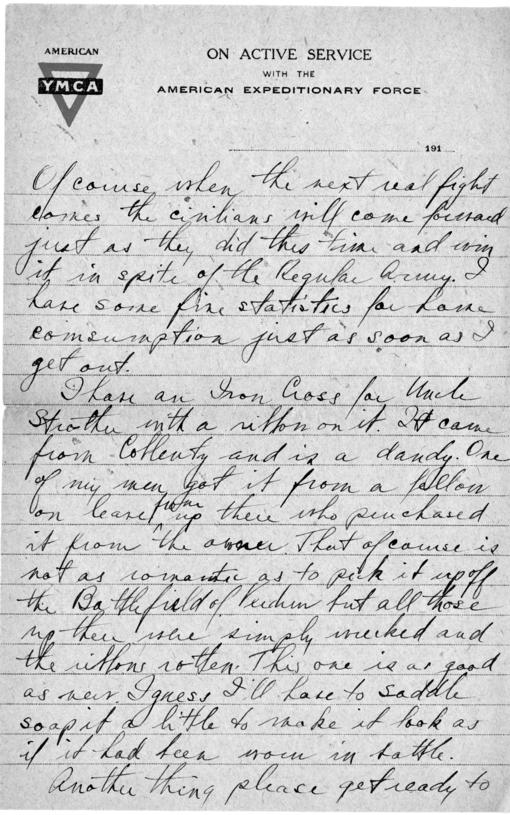 AMERICAN
YMCA
ON ACTIVE SERVICE
WITH THE
AMERICAN EXPEDITIONARY FORCE
191
Of course, when the next real fight
comes the civilians will come forward
just as they did this time and win
it in spite of the Regular Army. I
have some fine statistics for home
comsumption just as soon as I
get out.
I have an Iron Cross for Uncle
Strother with a ribbon on it. It came
from Coblenty and is a dandy. One
of my men got it from a fellow
on leave from up there who purchased
it from the owner. That of course is
not as romantic as to pick it up off
the Battlefield of Verdun but all those
up there were simply wrecked and
the ribbons rotten. This one is as good
as new. I guess I'll have to saddle
soap it a little to make it look as
if it had been worn in battle.
Another thing please get ready to